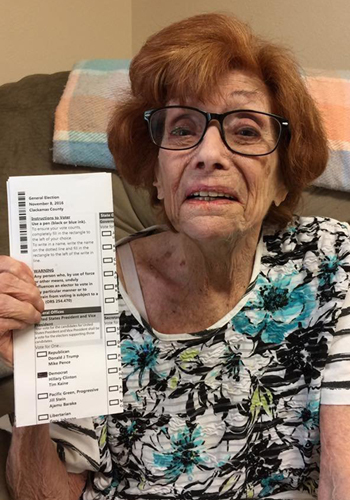 General Election
November 8, 2016
Clackamas County
Instructions to Voter
Use a pen (black or blue ink).
To ensure your vote counts,
completely fill in the rectangle to
the left of your choice.
To write in a name, write the name
on the dotted line and fill in the
rectangle to the left of the write-in
line.
WARNING
Any person who, by use of force
or other means, unduly
influences an elector to vote in
any particular manner or to
from voting is subject to a
(ORS 254.470)
State
Offices
United States President and Vice
President
Vote for One
Republican
Donald J Trump
Mike Pence
Democrat
Hillary Clinton
Tim Kaine
Pacific Green, Progressive
Jill Stein
Ajamu Baraka
Libertarian